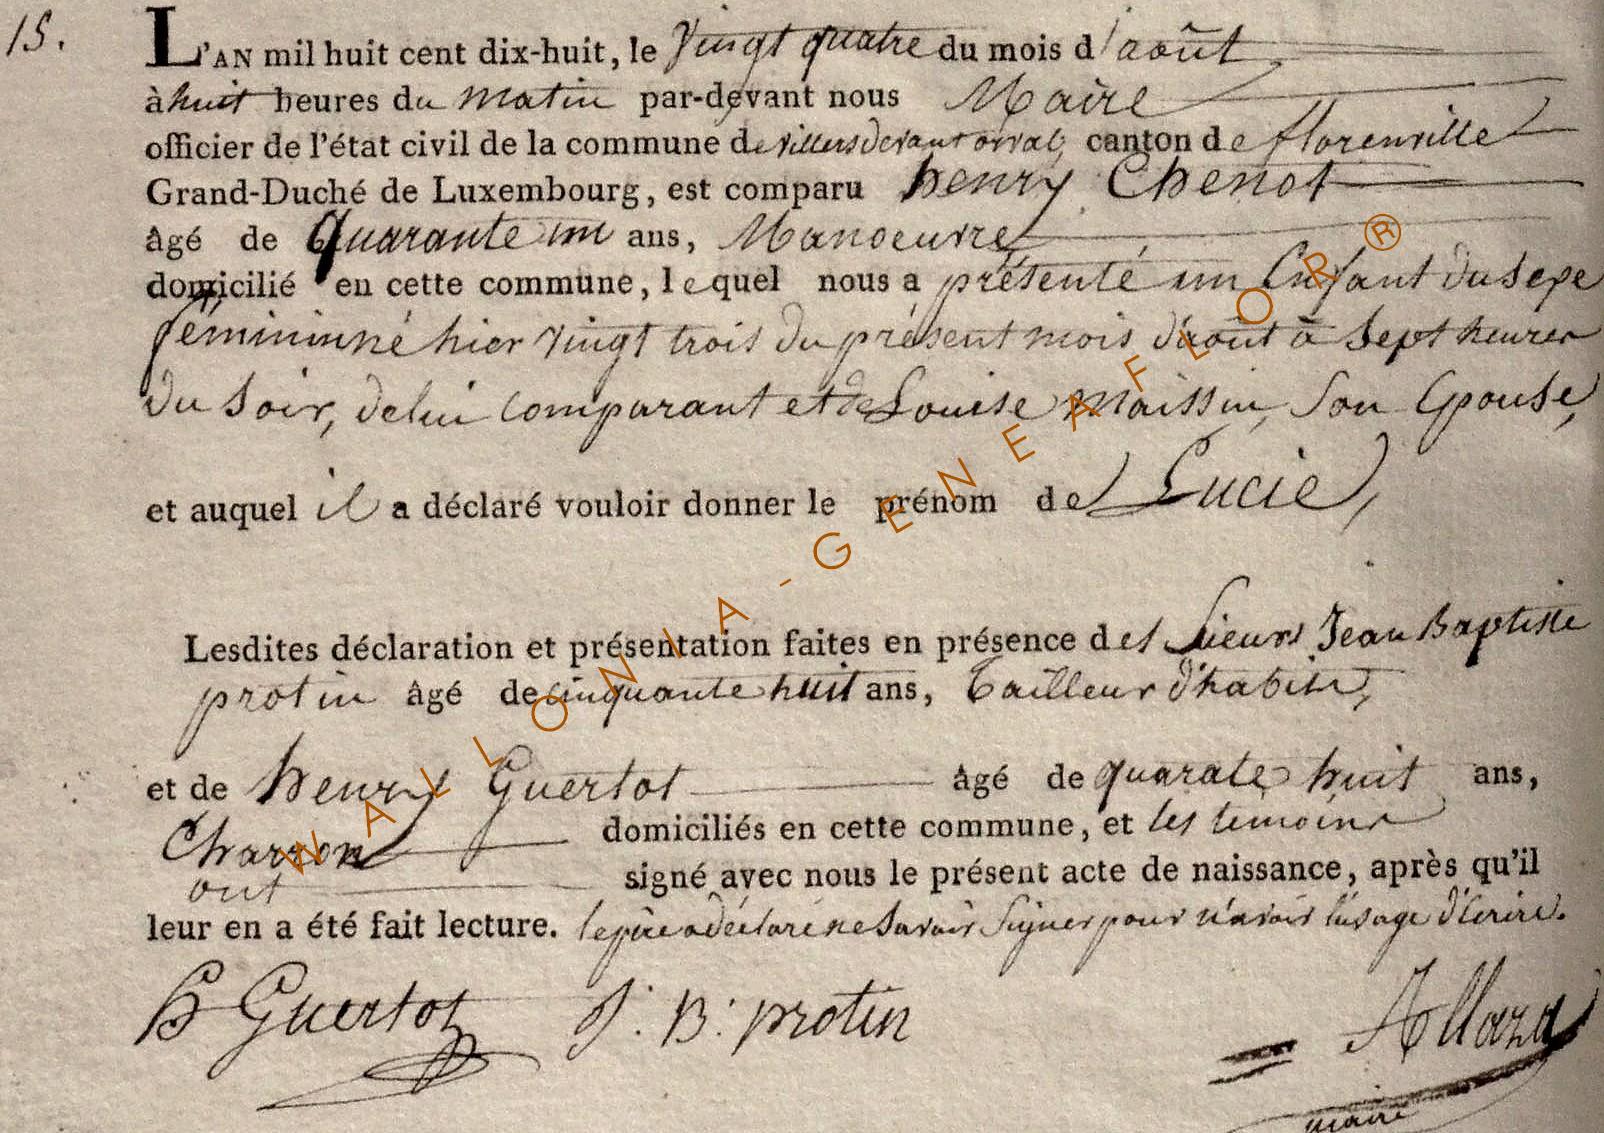 15.
L'AN mil huit cent dix-huit, le Vingt quatre du mois d'août
à huit heures du matin par-devant nous Maire
officier de l'état civil de la commune de villers devant orval, canton de florenville
Grand-Duché de Luxembourg, est comparu henry Chenot
âgé de quarante un ans, Manoeuvre
domicilié en cette commune, lequel nous a présenté un Enfant du Sexe
féminin né hier vingt trois du présent mois d'août à Sept heures
du Soir, de lui comparant et de Louise Maissin, Son Epouse,
et auquel il a déclaré vouloir donner le prénom de Lucie,
Lesdites déclaration et présentation faites en présence des Sieurs Jean Baptiste
protin âgé de cinquante huit ans, Tailleur d'habits,
et de henry Guertot âgé de quarate huit ans,
Charron domiciliés en cette commune, et les temoins
ont signé avec nous le présent acte de naissance, après qu'il
leur en a été fait lecture. le père a déclaré ne Savoir Signer pour n'avoir l'usage d'écrire.
H Guertot J. B. protin
maire
WALLONIA-GENEAFLOR®